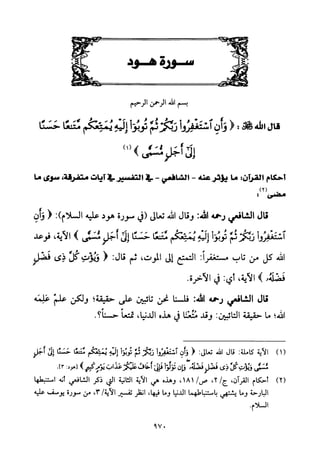 سورة هود
بسم الله الرحمن الرحيم
قال الله ﷻ : ﴿ وَأَنِ ٱسْتَغْفِرُوا۟ رَبَّكُمْ ثُمَّ تُوبُوٓا۟ إِلَيْهِ يُمَتِّعْكُم مَّتَـٰعًا حَسَنًا
إِلَىٰٓ أَجَلٍ مُّسَمًّى ﴾ (١)
أحكام القرآن: ما يؤثر عنه - الشافعي - في التفسير في آيات متفرقة، سوى ما
مضى (٢):
قال الشافعي رحمه الله: وقال الله تعالى (في سورة هود عليه السلام): ﴿ وَأَنِ
ٱسْتَغْفِرُوا۟ رَبَّكُمْ ثُمَّ تُوبُوٓا۟ إِلَيْهِ يُمَتِّعْكُم مَّتَـٰعًا حَسَنًا إِلَىٰٓ أَجَلٍ مُّسَمًّى ﴾ الآية، فوعد
الله كل من تاب مستغفراً: التمتع إلى الموت، ثم قال: ﴿ وَيُؤْتِ كُلَّ ذِى فَضْلٍ
فَضْلَهُۥ ﴾ الآية، أي: في الآخرة.
قال الشافعي رحمه الله: فلسنا نحن تائبين على حقيقة؛ ولكن علمٌ عَلِمَه
الله؛ ما حقيقة التائبين: وقد مُتِّعْنَا في هذه الدنيا، تمتعاً حسناً؟.
(١) الآية كاملة: قال الله تعالى: ﴿ وَأَنِ ٱسْتَغْفِرُوا۟ رَبَّكُمْ ثُمَّ تُوبُوٓا۟ إِلَيْهِ يُمَتِّعْكُم مَّتَـٰعًا حَسَنًا إِلَىٰٓ أَجَلٍ
مُّسَمًّى وَيُؤْتِ كُلَّ ذِى فَضْلٍ فَضْلَهُۥ وَإِن تَوَلَّوْا۟ فَإِنِّىٓ أَخَافُ عَلَيْكُمْ عَذَابَ يَوْمٍ كَبِيرٍ ﴾ [هود: ٣].
(٢) أحكام القرآن، ج/٢، ص/١٨١، وهذه هي الآية الثانية التي ذكر الشافعي أنه استنبطها
البارحة وما يشتهي باستنباطهما الدنيا وما فيها، انظر تفسير الآية/٣، من سورة يوسف عليه
السلام.
٩٧٠